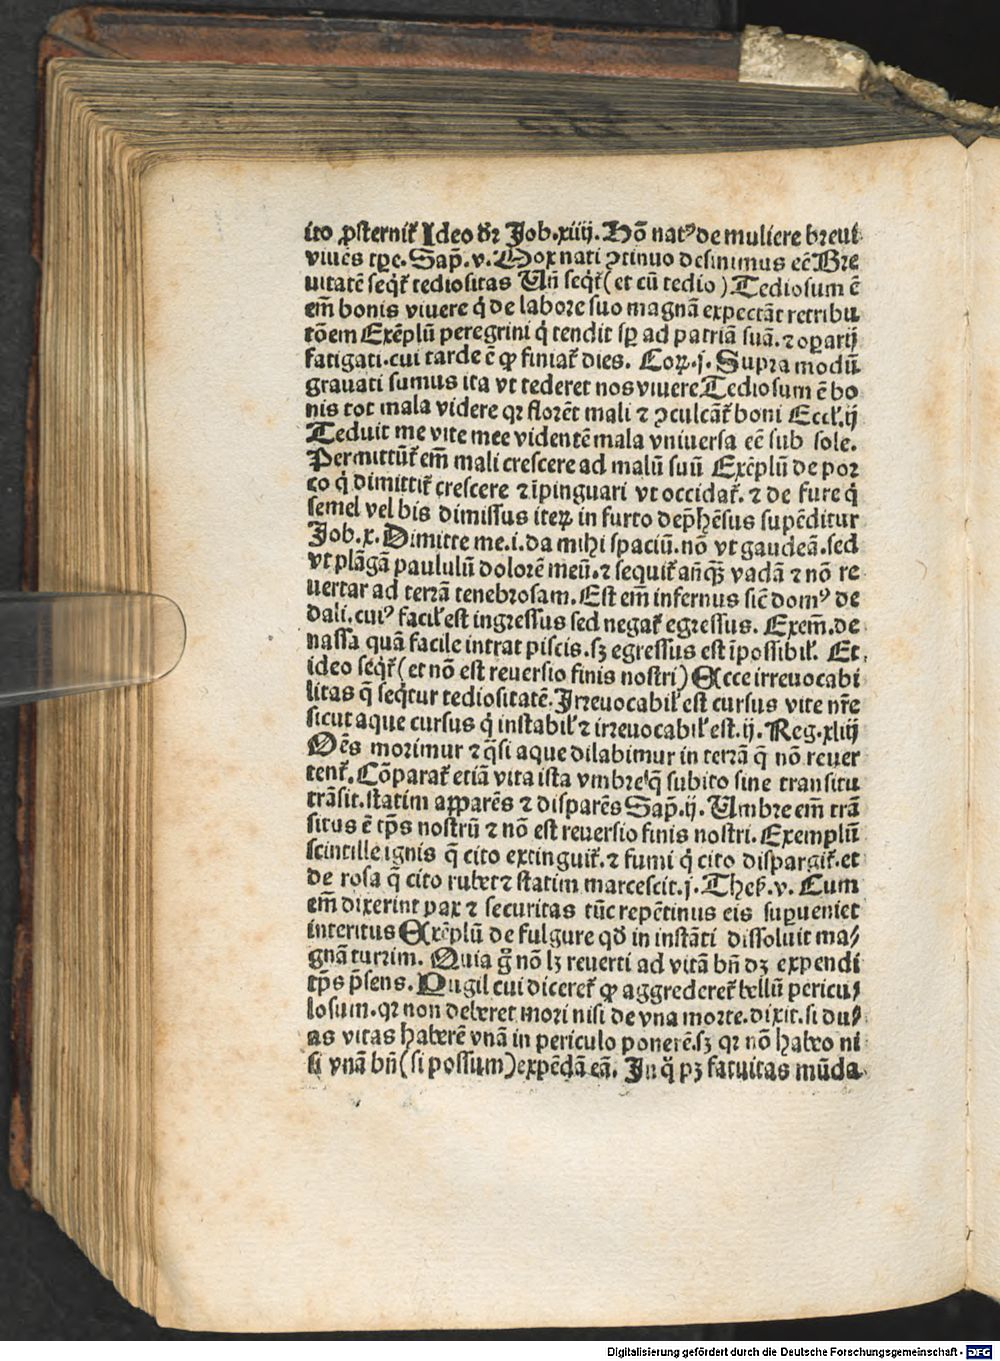 ito ꝓsternit᷑ Ideo dr̄ Job.xiiij. Hō natꝰ de muliere breui
viuēs tꝑe. Sap̄.v. Mox nati ꝯtinuo desinimus eē Bre
uitatē seqt᷑ tediositas Un̄ seqt᷑ (et cū tedio) Tediosum ē
em̄ bonis viuere q̇ de labore suo magnā expectāt retribu
tōem Exēplū peregrini q̇ tendit sꝑ ad patriā suā. ⁊ oꝑarij
fatigati. cui tarde ē ꝙ finiat᷑ dies. Coꝝ.j. Supra modū
grauati sumus ita vt tederet nos viuere Tediosum ē bo
nis tot mala videre qꝛ florēt mali ⁊ ꝯculcāt᷑ boni Eccl̄.ij
Teduit me vite mee videntē mala vniuersa eē sub sole.
Permittūt᷑ em̄ mali crescere ad malū suū Exēplū de por
co q̇ dimittit᷑ crescere ⁊ īpinguari vt occidat᷑. ⁊ de fure q̇
semel vel bis dimissus iteꝝ in furto dep̄hēsus supēditur
Job.x. Dimitte me.i.da mihi spaciū.nō vt gaudeā.sed
vt plāgā paululū dolorē meū.⁊ sequit᷑ an̄qꝫ vadā ⁊ nō re
uertar ad terrā tenebrosam. Est em̄ infernus sic̄ domꝰ de
dali. cuiꝰ facil᷑ est ingressus sed negat᷑ egressus. Exem̄.de
nassa quā facile intrat piscis.sꝫ egressus est īpossibil᷑. Et
ideo seqt᷑ (et nō est reuersio finis nostri) Ecce irreuocabi
litas q̄ seqtur tediositatē. Irreuocabil᷑ est cursus vite nr̄e
sicut aque cursus q̇ instabil᷑ ⁊ irreuocabil᷑ est.ij. Reg.xliij
Oēs morimur ⁊ q̄si aque dilabimur in terrā q̄ nō reuer
tent᷑. Cōparat᷑ etiā vita ista vmbre q̄ subito sine transitu
trāsit. statim apparēs ⁊ disparēs Sap̄.ij. Umbre em̄ trā
situs ē tp̄s nostrū ⁊ nō est reuersio finis nostri. Exemplū
scintille ignis q̄ cito extinguit᷑. ⁊ fumi q̇ cito dispargit᷑.et
de rosa q̄ cito rubet ⁊ statim marcescit. j. Thes̄.v. Cum
em̄ dixerint pax ⁊ securitas tūc repētinus eis suꝑueniet
interitus Exēplū de fulgure qd̄ in instāti dissoluit ma⸗
gnā turrim. Quia g̊ nō lꝫ reuerti ad vitā bn̄ dꝫ expendi
tp̄s p̄sens. Pugil cui diceret᷑ ꝙ aggrederet᷑ bellū pericu⸗
losum. qꝛ non deberet mori nisi de vna morte. dixit. si du⸗
as vitas haberē vnā in periculo ponerē.sꝫ qꝛ nō habeo ni
si vnā bn̄ (si possum) expēdā eā. In q̊ pꝫ fatuitas mūda
Digitalisierung gefördert durch die Deutsche Forschungsgemeinschaft - DFG